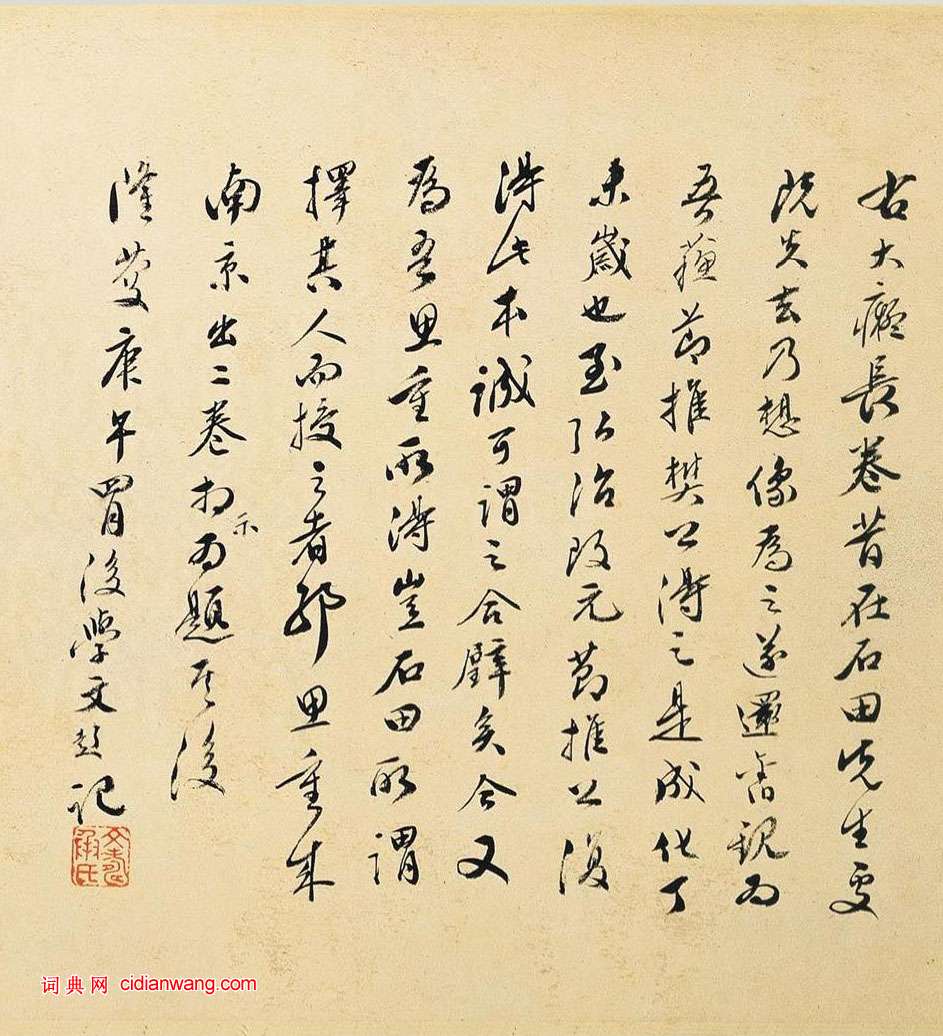 右大癡長卷昔在石田先生處
既失去乃想像為之遂還舊觀為
吾蘇節推樊公得之是成化丁
未歲也至弘治改元節推公復
得此本誠可謂之合璧矣今又
為吾思重所得豈石田所謂
擇其人而授之者耶思重來
南京出二卷相示為題其後
隆慶庚午四月後學文彭記
文壽承氏
词典网 cidianwang.com